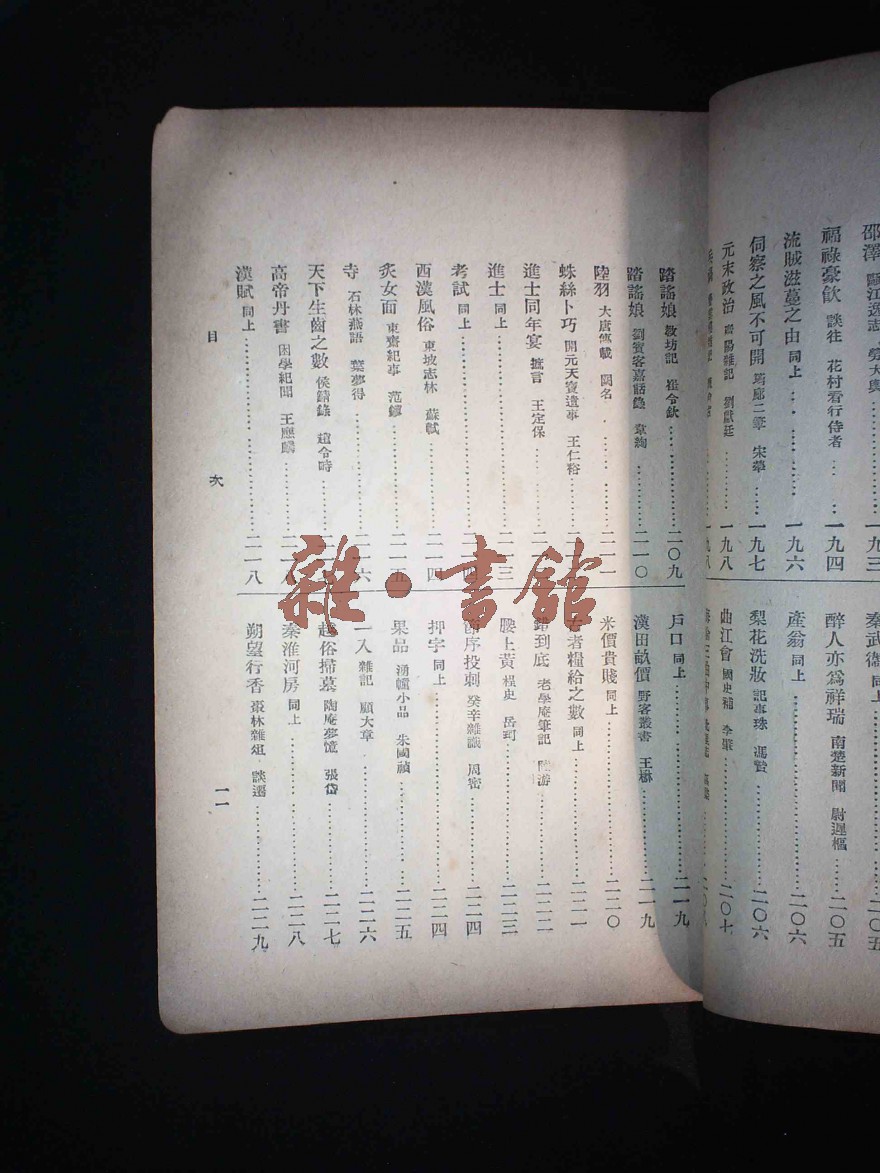 邵潭 甌江逸志 勞大與……一九三
福祿豪飲 談往 花村看行侍者……一九四
流賊滋蔓之由 同上……一九六
伺察之風不可開 筠廊二筆 宋犖……一九七
元末政治 廣陽雜記 劉獻廷……一九八
一九八
秦武衛 同上……二〇五
醉人亦爲祥瑞 南楚新聞 尉遲樞……二〇五
產翁 同上……二〇六
梨花洗妝 記事珠 馮贄……二〇六
曲江會 國史補 李肇……二〇七
踏謠娘 教坊記 崔令欽……二〇九
踏謠娘 劉賓客嘉話錄 韋絢……二一〇
陸羽 大唐傳載 闕名……二一一
蛛絲卜巧 開元天寶遺事 王仁裕……二一
進士同年宴 摭言 王定保……二一
進士 同上……二一三
考試 同上……二一四
西漢風俗 東坡志林 蘇軾……二一四
炙女面 東齋紀事 范鎮……二一五
寺 石林燕語 葉夢得……二一六
天下生齒之數 侯鯖錄 趙令畤……二一
高帝丹書 困學紀聞 王應麟……二一八
漢賦 同上……二一八
戶口 同上……二一九
漢田畝價 野客叢書 王楙……二一九
米價貴賤 同上……二二〇
古者糧給之數 同上……二二一
錯到底 老學庵筆記 陸游……二二二
腰上黃 桯史 岳珂……二二三
節序投刺 癸辛雜識 周密……二二四
押字 同上……二二四
果品 湧幢小品 朱國禎……二二五
一入 雜記 顧大章……二二六
越俗掃墓 陶庵夢憶 張岱……二二七
秦淮河房 同上……二二八
朔望行香 棗林雜俎 談遷……二二九
目次
一一
雜·書館